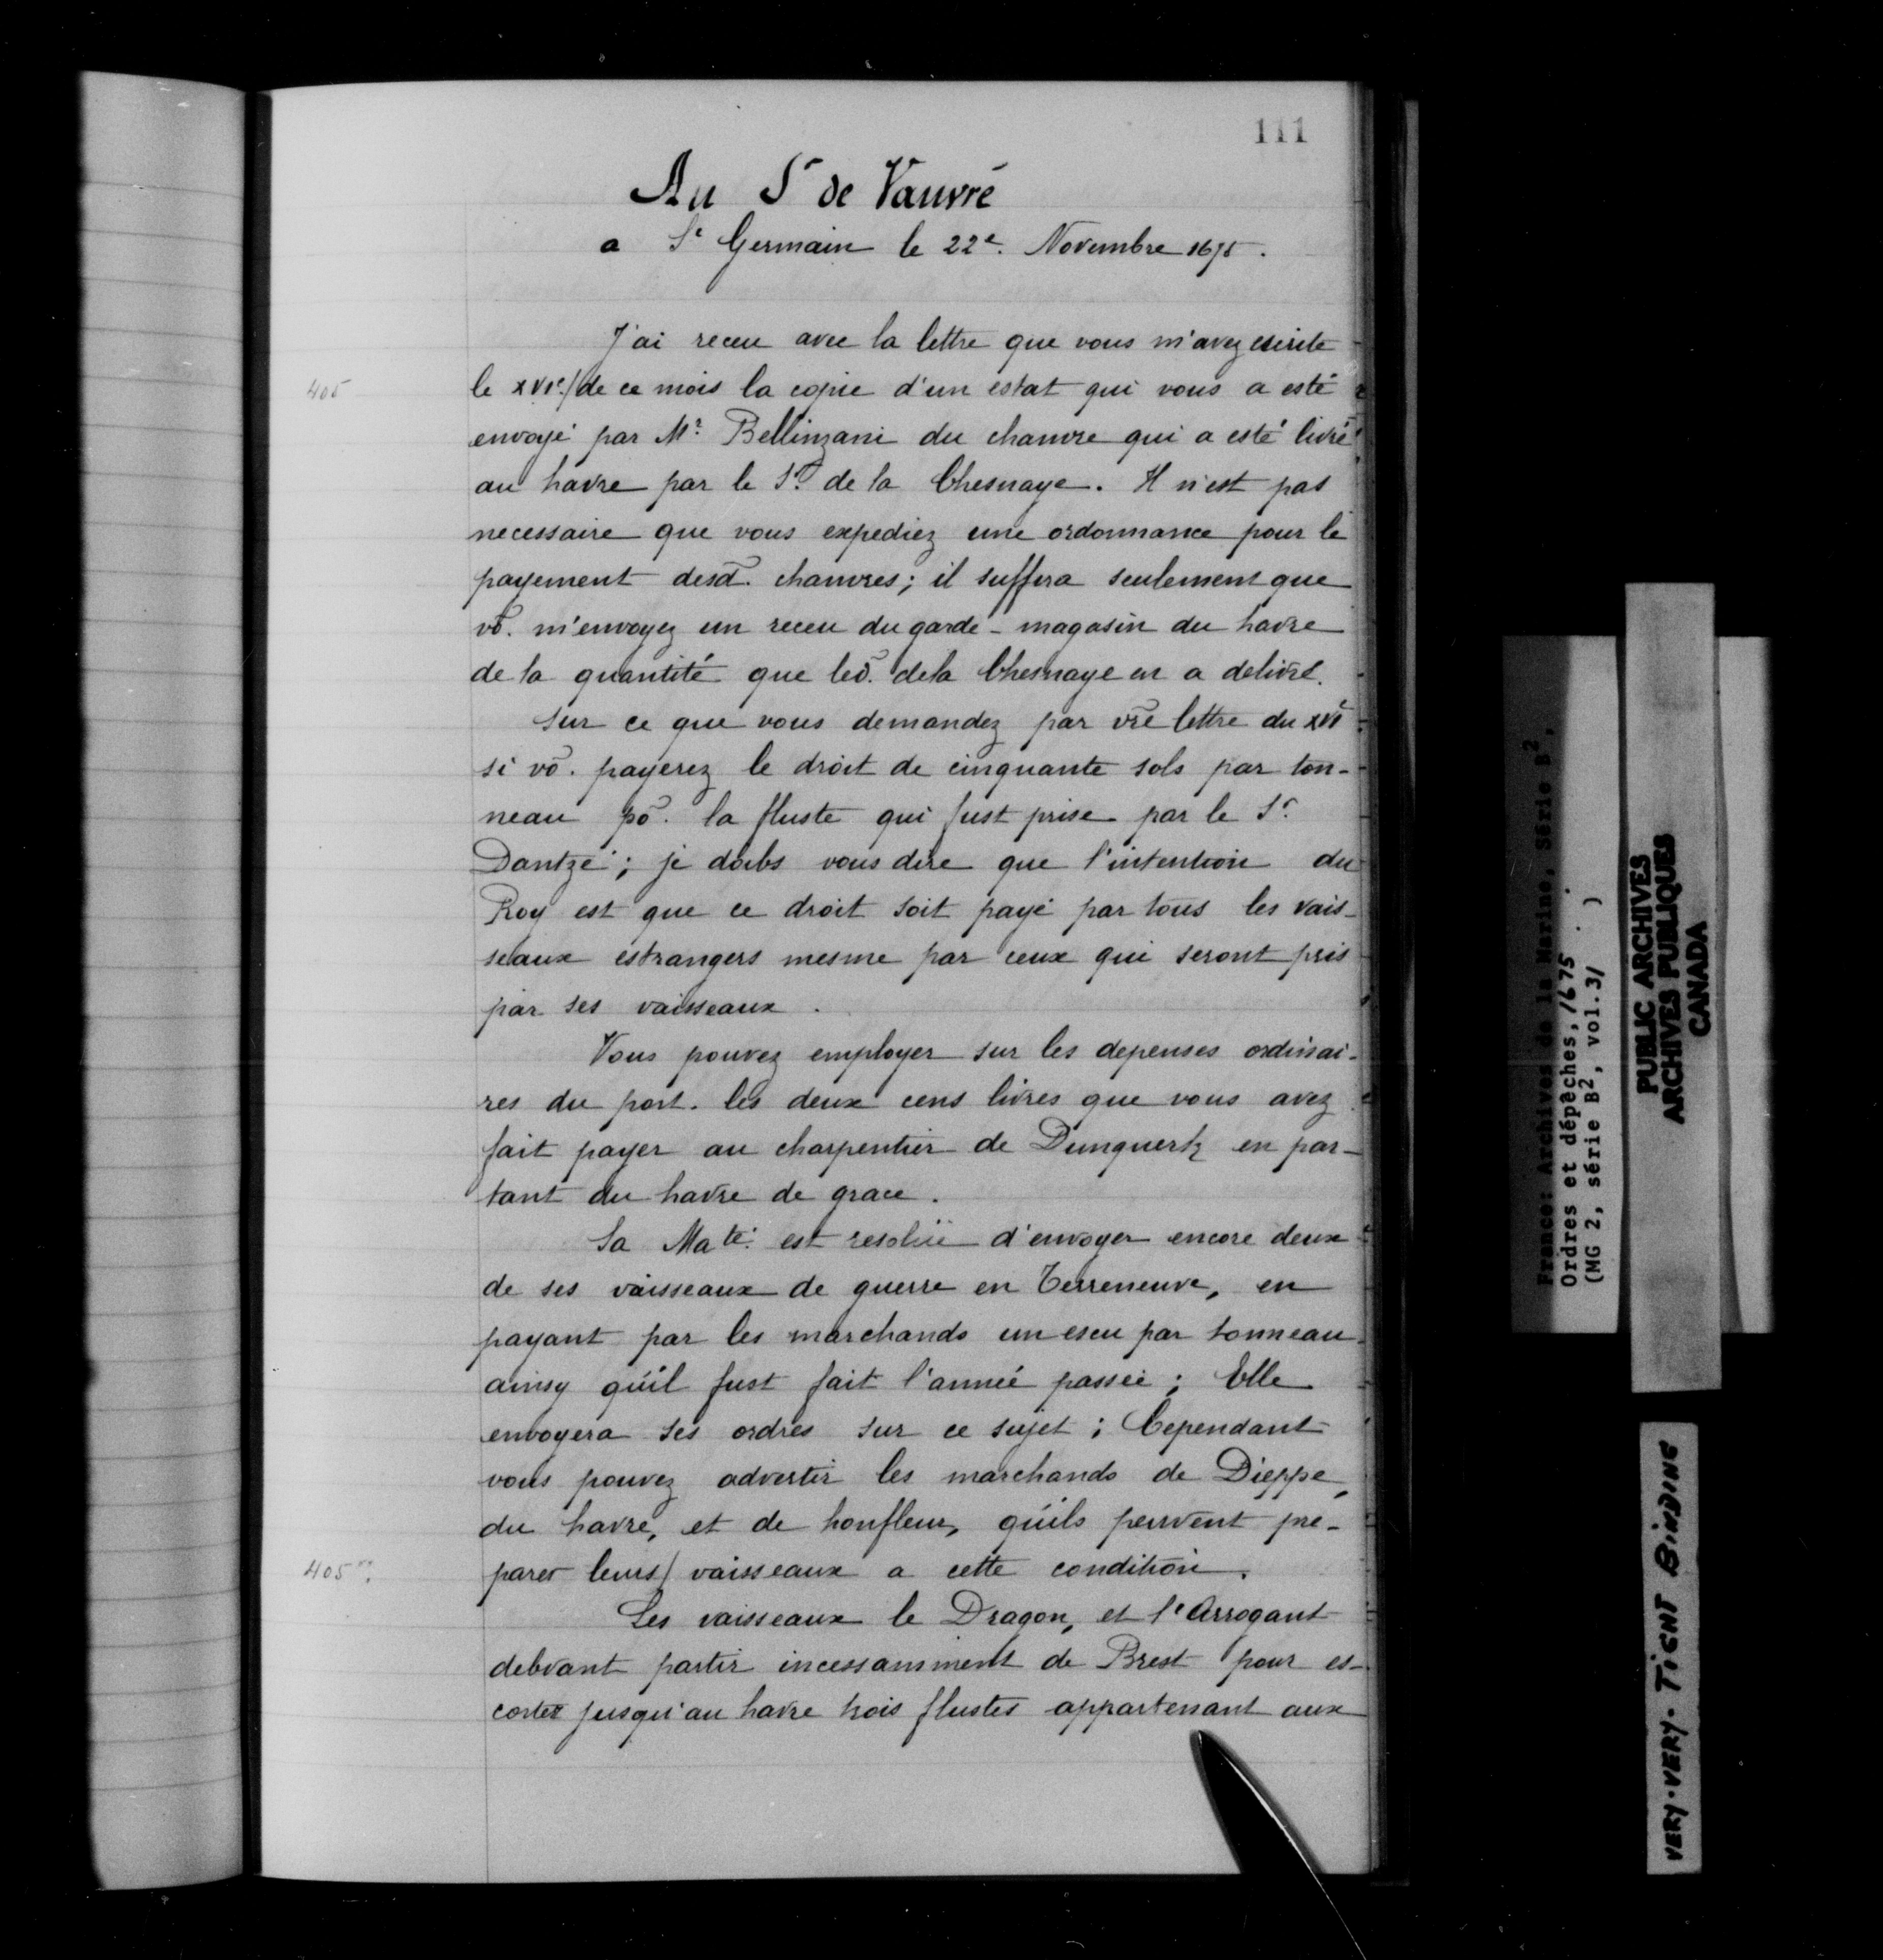 111
Au Sr de Vauvré
a St Germain le 22e. Novembre 1675.
J'ai receu avec la lettre que vous m'avez escrite
405
le XVIe./ de ce mois la copie d'un estat qui vous a esté
envoyé par Mr. Bellinzani du chanvre qui a esté livré
au havre par le Sr. de la Chesnaye. Il n'est pas
necessaire que vous expediez une ordonnance pour le
payement desd. chanvres; il suffira seulement que
vō. m'envoyez un receu du garde-magasin du havre
de la quantité que led. dela Chesnaye en a delivré.
Sur ce que vous demandez par vre lettre du XVIe
si vō. payerez le droit de cinquante sols par ton-
neau pō. la fluste qui fust prise par le Sr.
Dantzé; je doibs vous dire que l'intention du
Roy est que ce droit soit payé par tous les vais-
seaux estrangers mesme par ceux qui seront pris
par ses vaisseaux.
Vous pouvez employer sur les depenses ordinai-
res du port. les deux cens livres que vous avez
fait payer au charpentier de Dunquerk en par-
tant du havre de grace.
Sa Maté. est resolüe d'envoyer encore deux
de ses vaisseaux de guerre en Terreneuve, en
payant par les marchands un escu par tonneau
ainsy qu'il fust fait l'année passée; Elle
envoyera ses ordres sur ce sujet; Cependant
vous pouvez advertir les marchands de Dieppe,
du havre, et de honfleur, qu'ils peuvent pre-
405vo.
parer leurs/ vaisseaux a cette condition.
Les vaisseaux le Dragon, et l'Arrogant
debvant partir incessamment de Brest pour es-
corter jusqu'au havre trois flustes appartenant aux
France: Archives de la Marine, Série B2,
Ordres et dépêches, 1675 . .
(MG 2, série B2, vol.31 )
PUBLIC ARCHIVES
ARCHIVES PUBLIQUES
CANADA
VERY-VERY-TIGHT BINDING